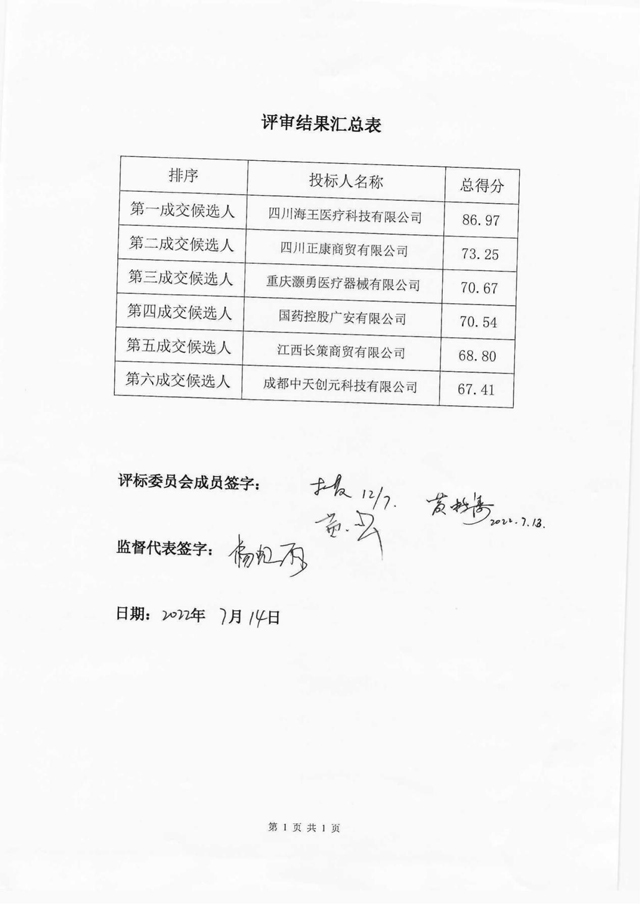 评审结果汇总表
排序 投标人名称 总得分
第一成交候选人 四川海王医疗科技有限公司 86.97
第二成交候选人 四川正康商贸有限公司 73.25
第三成交候选人 重庆灏勇医疗器械有限公司 70.67
第四成交候选人 国药控股广安有限公司 70.54
第五成交候选人 江西长策商贸有限公司 68.80
第六成交候选人 成都中天创元科技有限公司 67.41
评标委员会成员签字： 12/7. 黄 2022.7.13
监督代表签字：
日期：2022年 7月14日
第 1 页 共 1 页